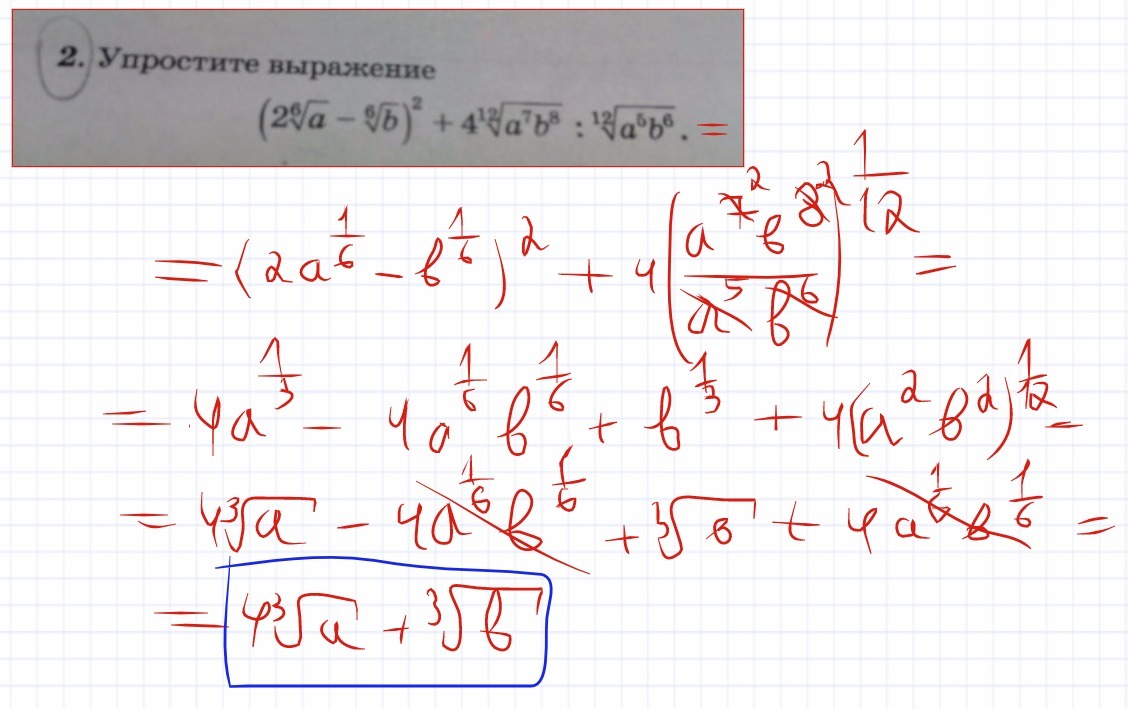 2. Упростите выражение
(2⁶√a − ⁶√b)² + 4¹²√a⁷b⁸ : ¹²√a⁵b⁶. =
= (2a^{1/6} − b^{1/6})² + 4(a^{7 2} b^{8 2} / a⁵ b⁶)^{1/12} =
= 4a^{1/3} − 4a^{1/6} b^{1/6} + b^{1/3} + 4(a² b²)^{1/12} =
= 4³√a − 4a^{1/6} b^{1/6} + ³√b + 4a^{1/6} b^{1/6} =
= 4³√a + ³√b